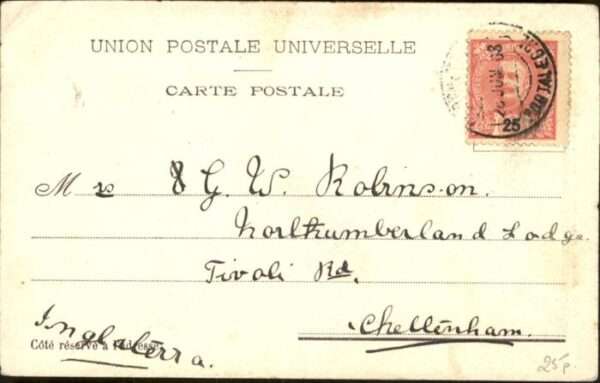 UNION POSTALE UNIVERSELLE
CARTE POSTALE
PORTALEGRE
25
Mrs G. W. Robinson.
Northumberland Lodge
Tivoli Rd.
Cheltenham.
Inglaterra.
Côté réservé à l'adresse
25p.